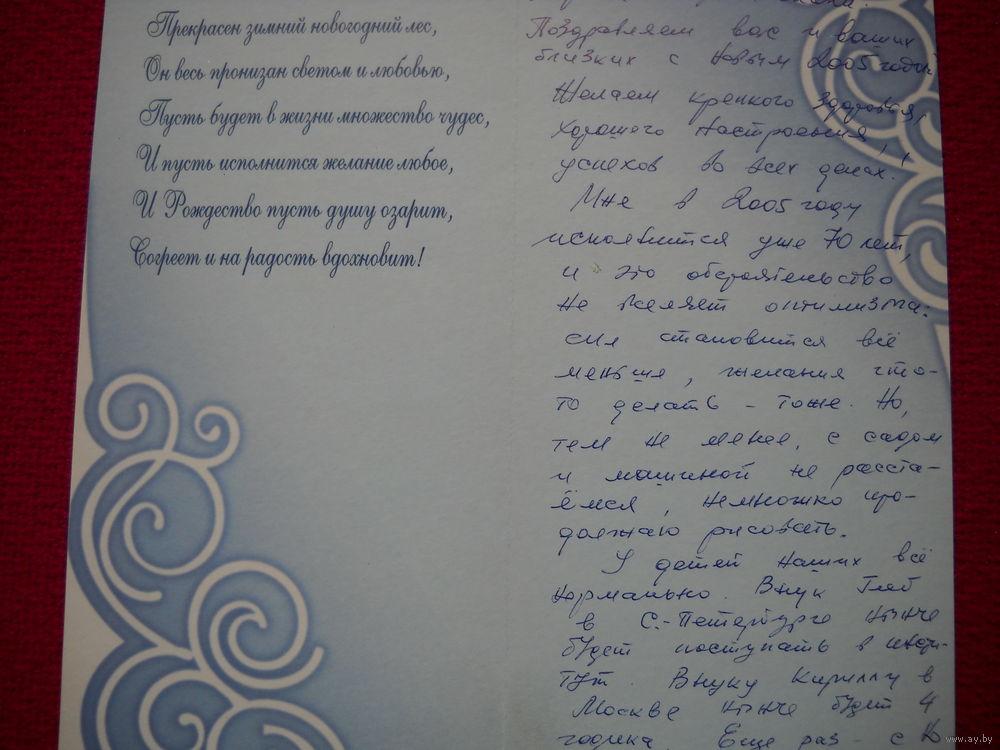 Прекрасен зимний новогодний лес,
Он весь пронизан светом и любовью,
Пусть будет в жизни множество чудес,
И пусть исполнится желание любое,
И Рождество пусть душу озарит,
Согреет и на радость вдохновит!
Поздравляем вас и ваших
близких с Новым 2005 годом
Желаем крепкого здоровья,
хорошего настроения,
успехов во всех делах!
Мне в 2005 году
исполнится уже 70 лет,
и это обстоятельство
не вселяет оптимизма:
сил становится всё
меньше, желания что-
то делать – тоже. Но,
тем не менее, с садом
и машиной не расста-
ёмся, немножко про-
должаю рисовать.
У детей наших всё
нормально. Внук Глеб
в С.-Петербурге нынче
будет поступать в инсти-
тут. Внуку Кириллу в
Москве нынче будет 4
годика. Еще раз – с
www.ay.by